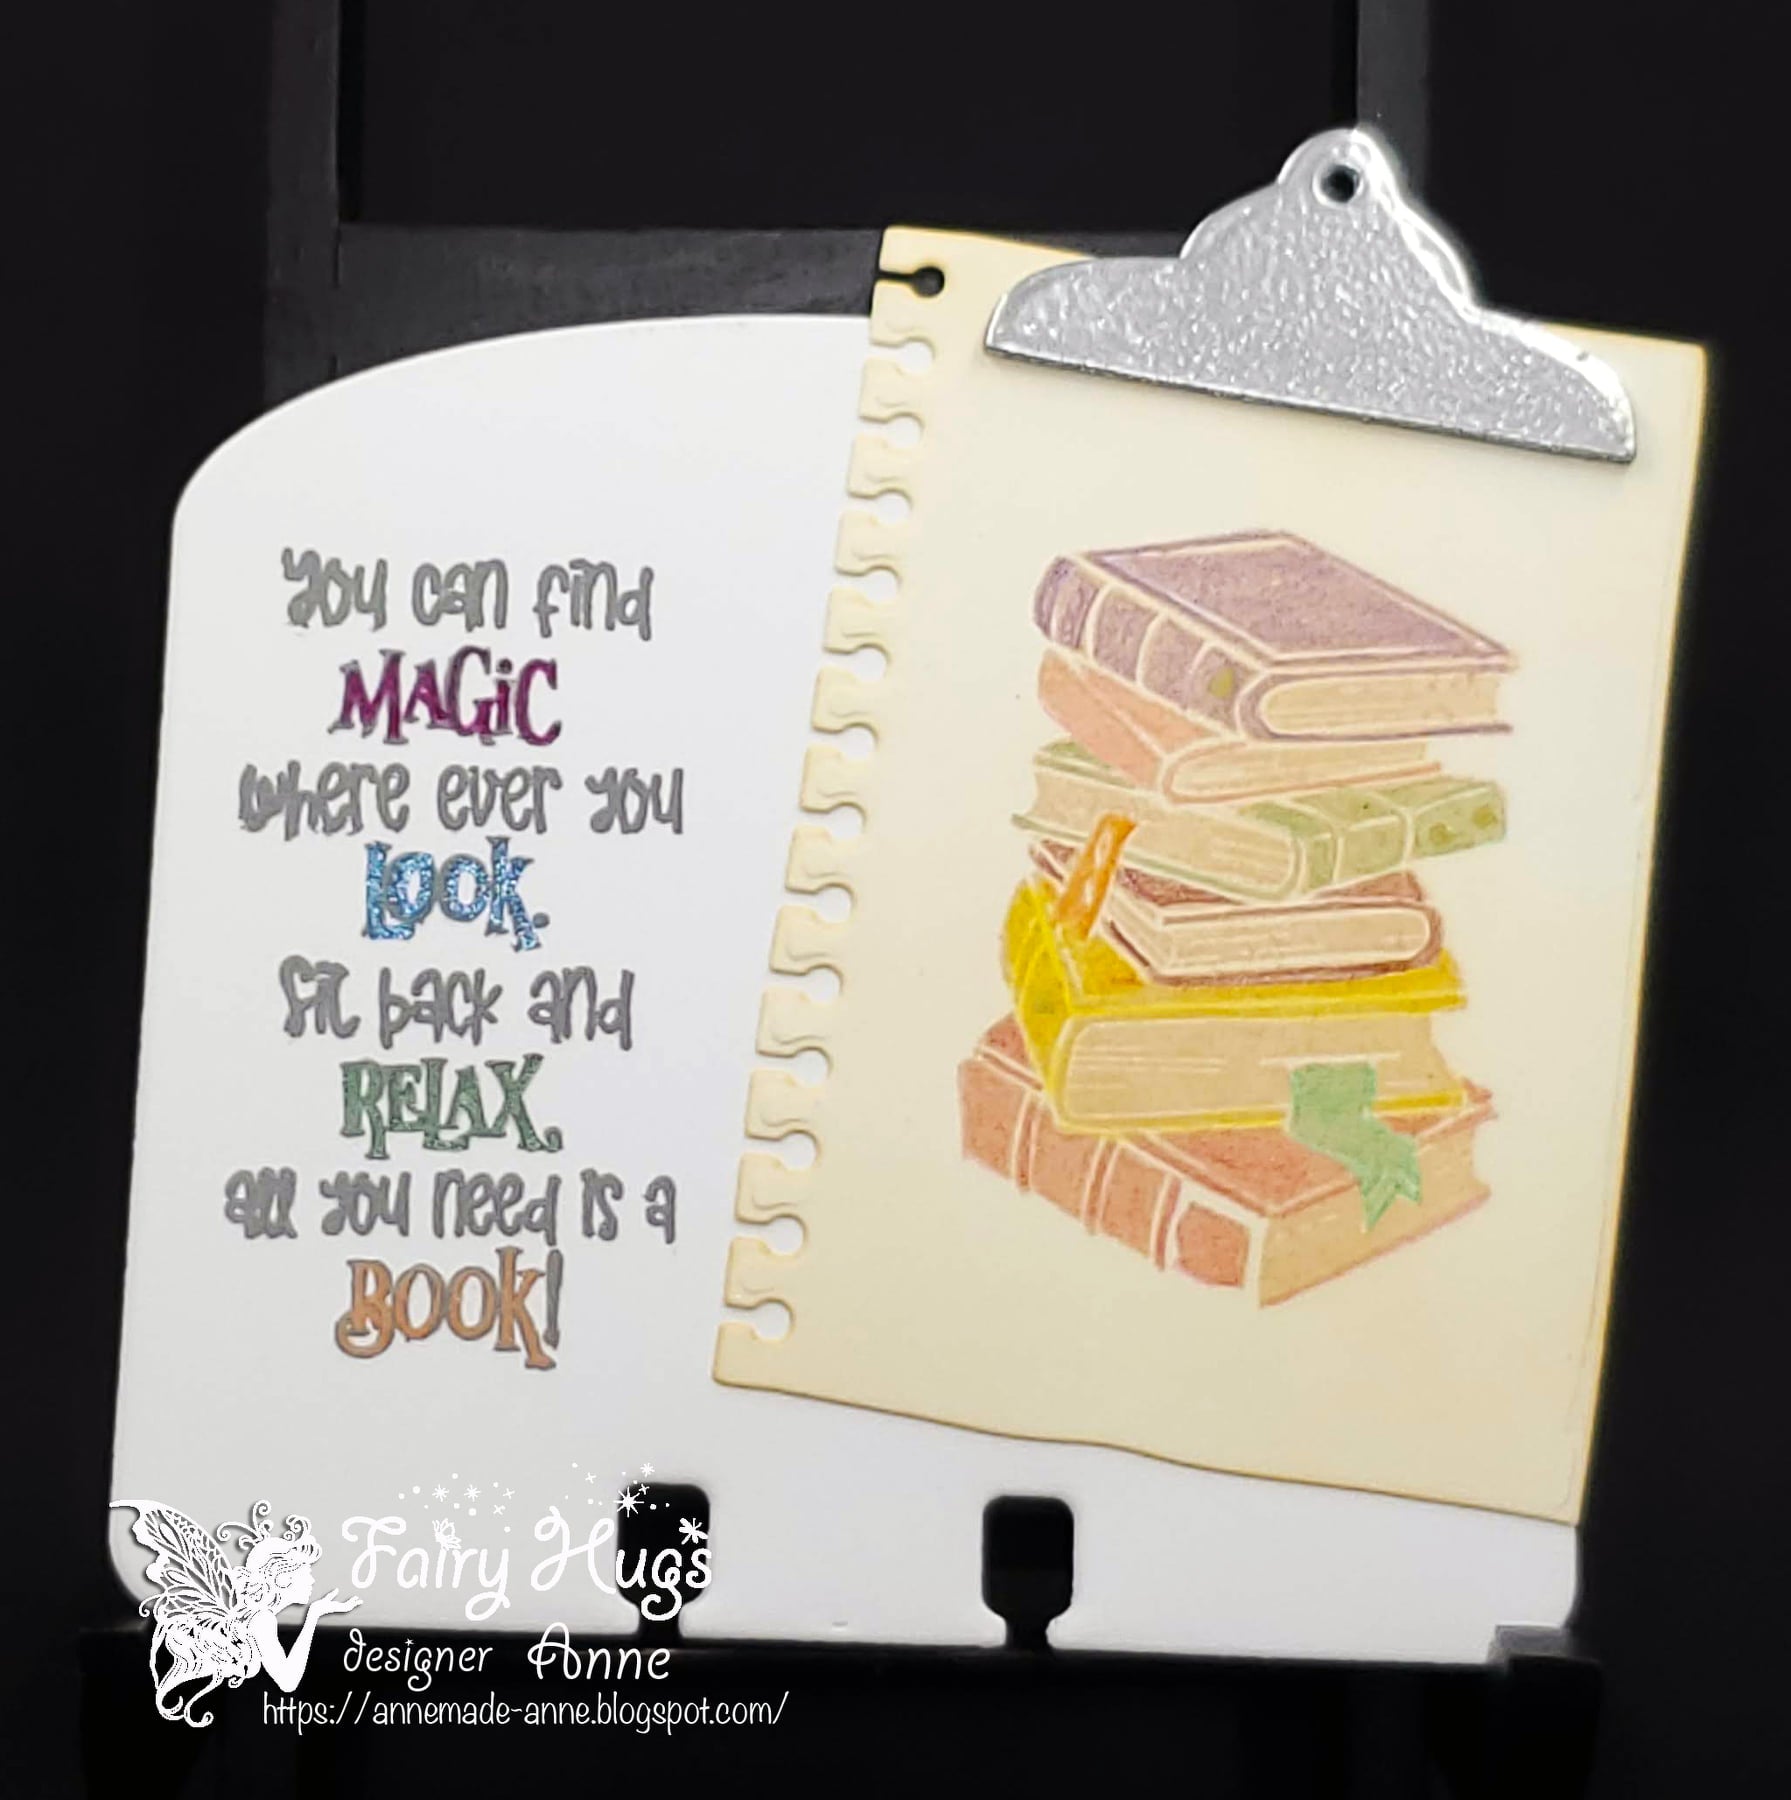 You can find
MAGiC
where ever you
Look.
Sit back and
RELAX
all you need is a
BOOK!
Fairy Hugs
designer Anne
https://annemade-anne.blogspot.com/